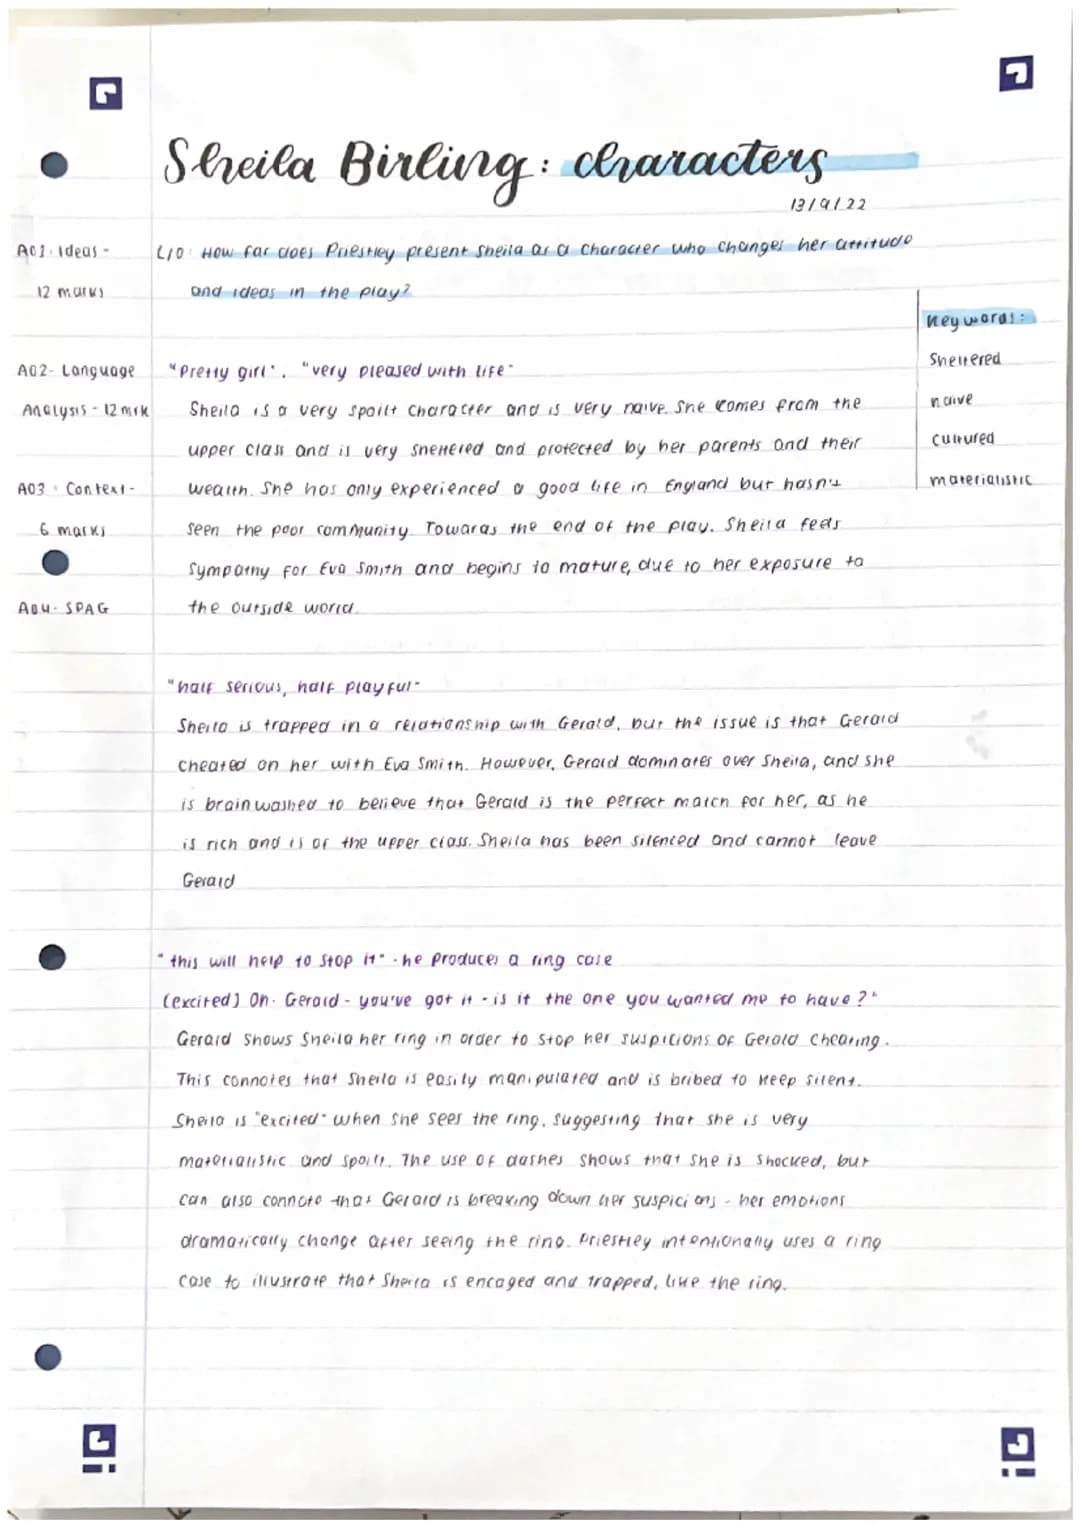 Sheila Birling: characters
13/9/22
AO1: Ideas -
12 marks
L/O: How far does Priestley present Sheila as a character who changes her attitude
and ideas in the play?
Key words:
Sheltered
naive
cultured
materialistic
AO2- Language
Analysis - 12 mrk
AO3: Context-
6 marks
AO4- SPAG
"Pretty girl", "very pleased with life"
Sheila is a very spoilt character and is very naive. She comes from the
upper class and is very sheltered and protected by her parents and their
wealth. She has only experienced a good life in England but hasn't
seen the poor community. Towards the end of the play, Sheila feels
sympathy for Eva Smith and begins to mature, due to her exposure to
the outside world.
"half serious, half playful"
Sheila is trapped in a relationship with Gerald, but the issue is that Gerald
cheated on her with Eva Smith. However, Gerald dominates over Sheila, and she
is brainwashed to believe that Gerald is the perfect match for her, as he
is rich and is of the upper class. Sheila has been silenced and cannot leave
Gerald
"this will help to stop it" - he produces a ring case
(excited) Oh- Gerald - you've got it - is it the one you wanted me to have?"
Gerald shows Sheila her ring in order to stop her suspicions of Gerald cheating.
This connotes that Sheila is easily manipulated and is bribed to keep silent.
Sheila is "excited" when she sees the ring, suggesting that she is very
materialistic and spoilt. The use of dashes shows that she is shocked, but
can also connote that Gerald is breaking down her suspicions - her emotions
dramatically change after seeing the ring. Priestley intentionally uses a ring
case to illustrate that Sheila is encaged and trapped, like the ring.